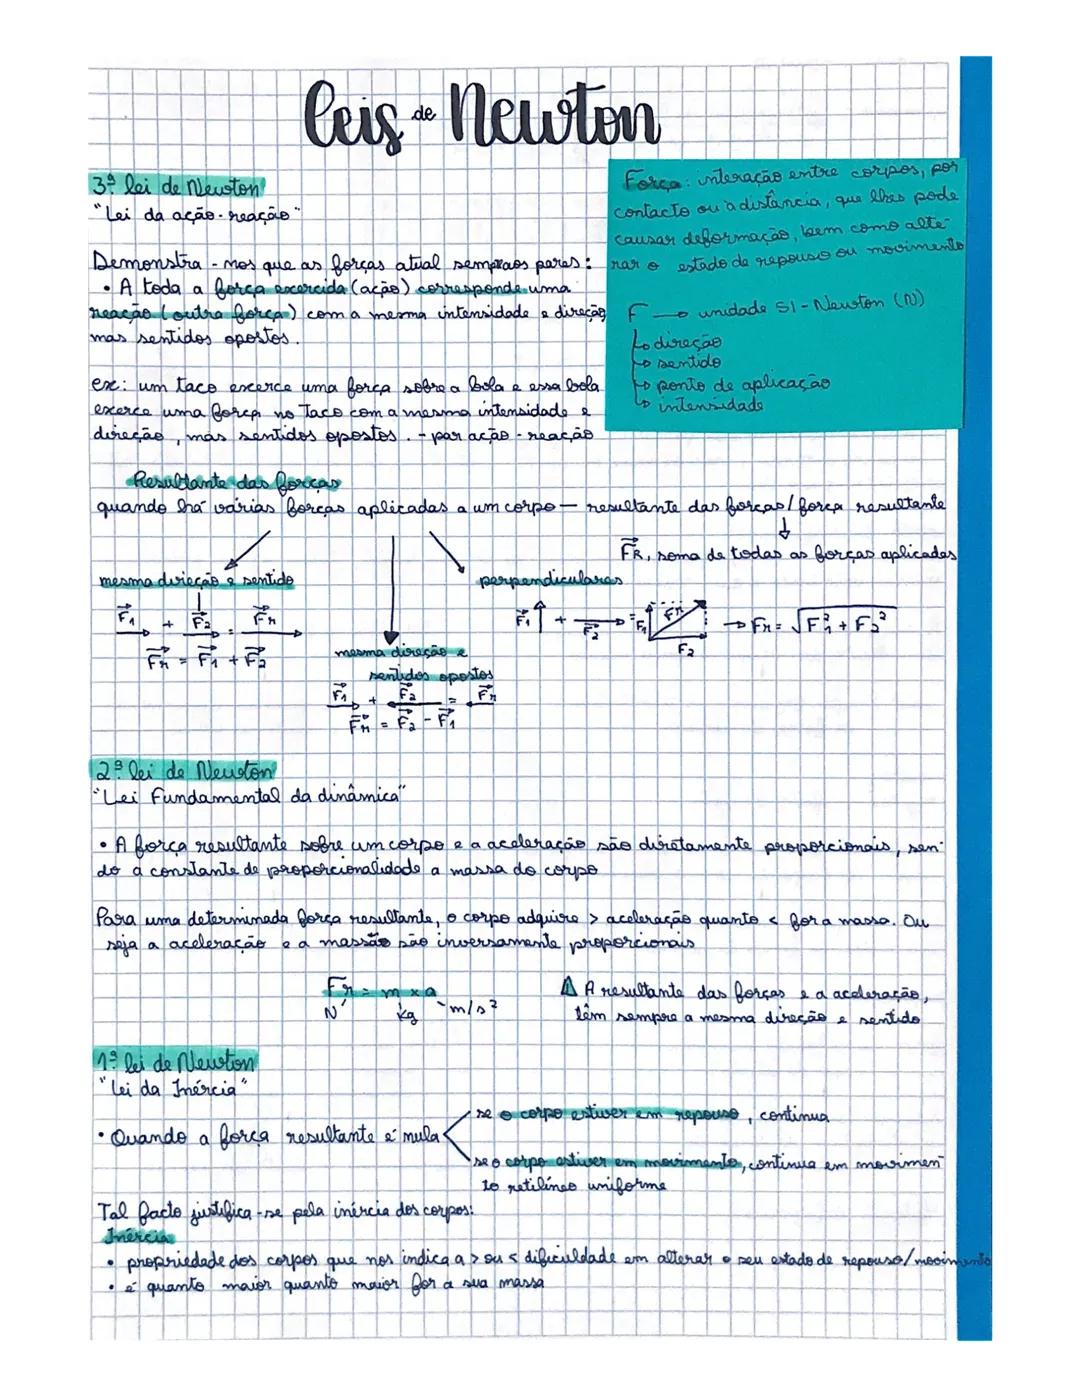 Leis de Newton
3ª lei de Newton
"Lei da ação-reação"
Demonstra-nos que as forças atual sempraos pares:
• A toda a força excercida (ação) corresponde uma
reação (outra força) com a mesma intensidade e direção
mas sentidos opostos.
ex: um taco excerce uma força sobre a bola e essa bola
excerce uma força no taco com a mesma intensidade e
direção, mas sentidos opostos. - par ação-reação
Força: interação entre corpos, por
contacto ou à distância, que lhes pode
causar deformação, bem como alte-
rar o estado de repouso ou movimento
F → unidade SI - Newton (N)
↳ direção
↳ sentido
↳ ponto de aplicação
↳ intensidade
Resultante das forças
quando há várias forças aplicadas a um corpo — resultante das forças/força resultante
↓
F⃗R, soma de todas as forças aplicadas
mesma direção e sentido
F⃗1 + F⃗2 = F⃗r
F⃗r = F⃗1 + F⃗2
mesma direção e
sentidos opostos
F⃗1 + F⃗2 = F⃗r
F⃗r = F⃗2 - F⃗1
perpendiculares
F⃗1 + F⃗2 = F1 Fr → Fr = √F1² + F2²
F2
2ª lei de Newton
"Lei Fundamental da dinâmica"
• A força resultante sobre um corpo e a aceleração são diretamente proporcionais, sen-
do a constante de proporcionalidade a massa do corpo
Para uma determinada força resultante, o corpo adquire > aceleração quanto < for a massa. Ou
seja a aceleração e a massão são inversamente proporcionais
Fr = m x a
N kg m/s²
⚠ A resultante das forças e a aceleração,
têm sempre a mesma direção e sentido
1ª lei de Newton
"Lei da Inércia"
• Quando a força resultante é nula
se o corpo estiver em repouso, continua
se o corpo estiver em movimento, continua em movimen-
to retilíneo uniforme
Tal facto justifica-se pela inércia dos corpos:
Inércia
• propriedade dos corpos que nos indica a > ou < dificuldade em alterar o seu estado de repouso/movimento
• é quanto maior quanto maior for a sua massa